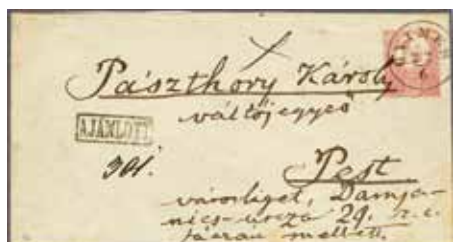 Pászthory Károly
váltójegyző
AJÁNLOTT
301.
Pest
városliget, Damja-
nics-utcza 29.
mellett.